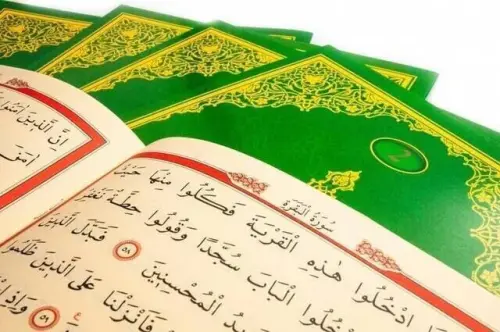 2
اِنَّ الَّذِينَ اٰمَنُوا
اٰمَنَ
سُورَةُ الْبَقَرَةِ
ادْخُلُوا هٰذِهِ الْقَرْيَةَ فَكُلُوا مِنْهَا حَيْثُ
الْبَابَ سُجَّدًا وَقُولُوا حِطَّةٌ نَغْفِرْ
الْمُحْسِنِينَ ٥٨ فَبَدَّلَ الَّذِينَ
فَاَنْزَلْنَا عَلَى الَّذِينَ ظَلَمُوا
٥٩ وَاِذِ